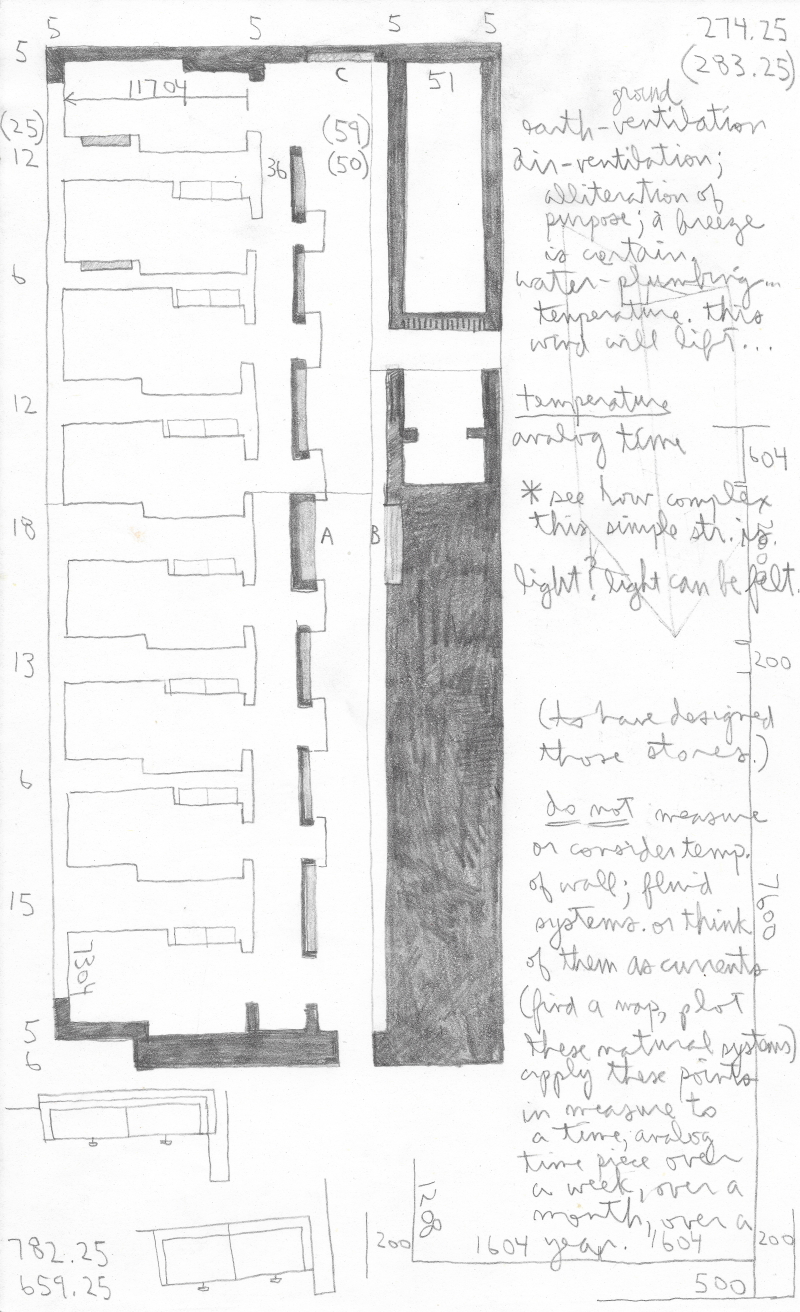 5 5 5 5
274.25
(283.25)
5
C
51
11704
ground
earth-ventilation
(25)
(59)
12
36
(50)
air-ventilation;
alliteration of
purpose; a breeze
is certain.
6
water-plumbing...
temperature. this
wind will lift...
12
temperature
analog time
604
* see how complex
this simple str. is.
18
A
B
light? light can be felt.
13
200
(to have designed
those stores.)
6
do not measure
or consider temp.
of wall; fluid
15
7600
systems. or think
of them as currents
7304
(find a map, plot
5
these natural systems)
6
apply these points
in measure to
a time, analog
time piece over
a week, over a
1208
month, over a
year.
782.25
200
1604
1604
200
659.25
500